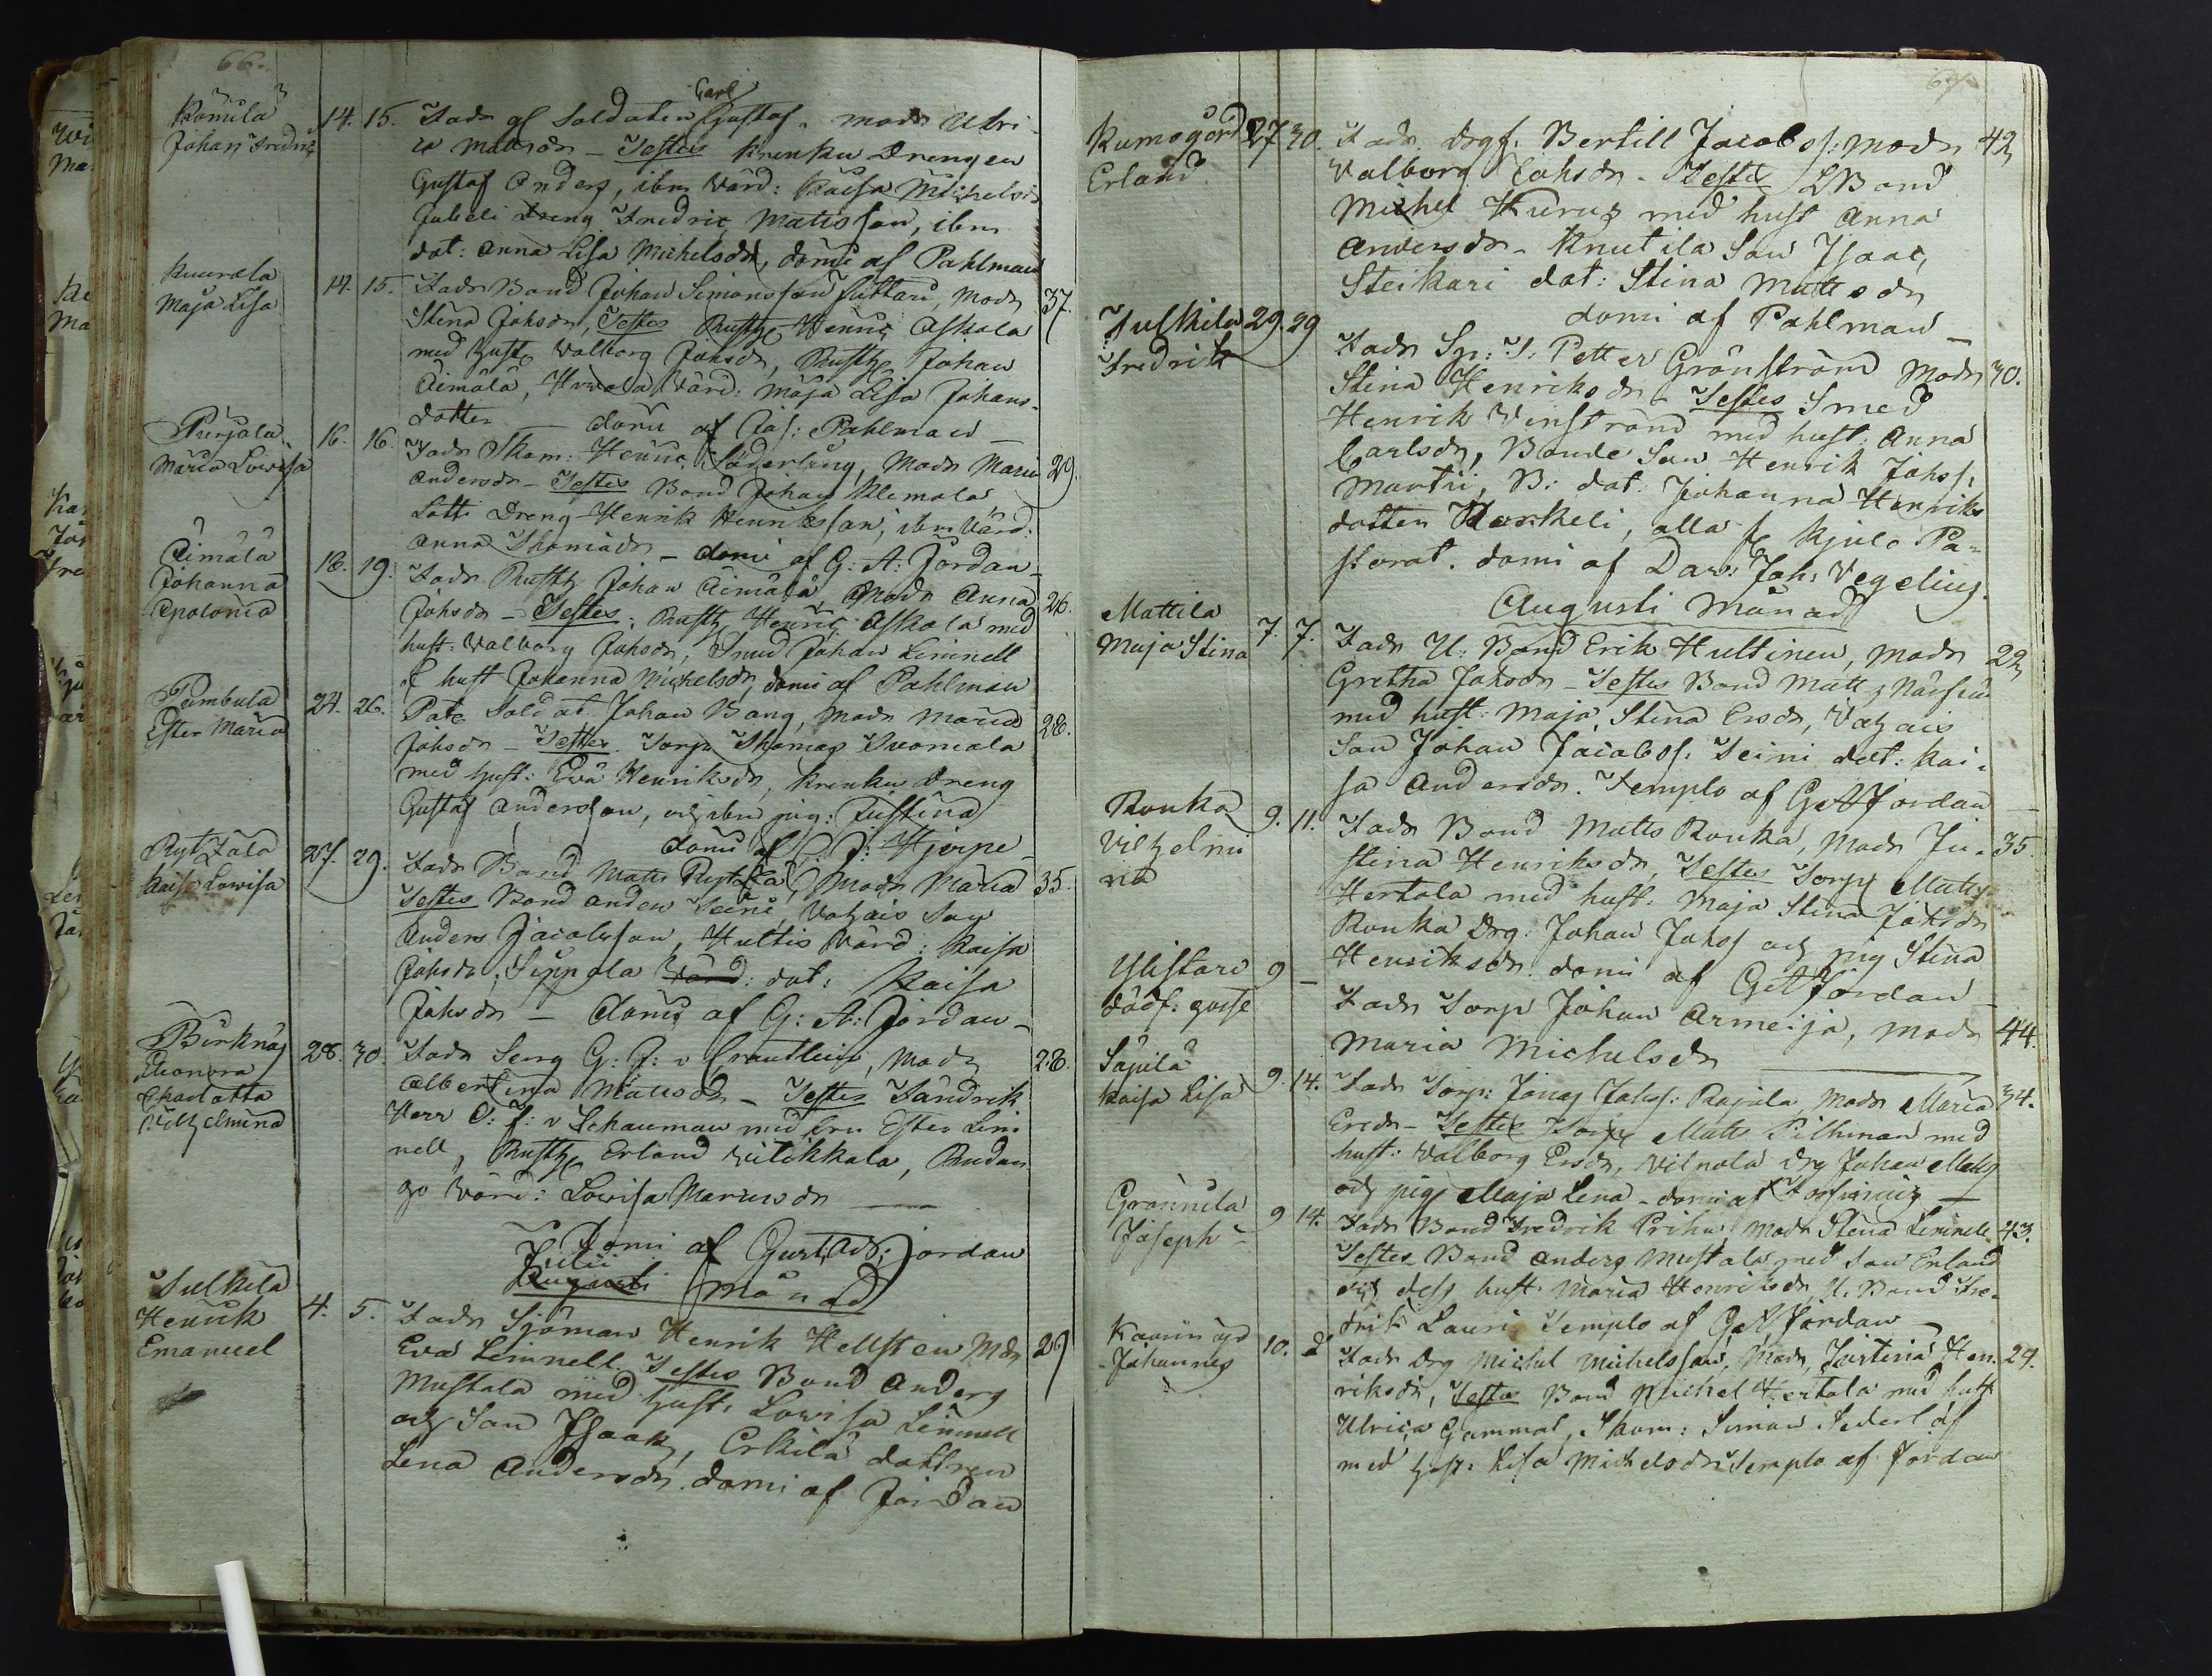 66.
Römilä
Johan Fredric
14. 15. Fadr af Soldaten Carl Gustaf. modr Ulri-
ca Mattsdr - Testes Krenku Drengen
Gustaf Anders, ibm Värd: Kaisa Michelsdr
Juveli Dreng Fredric Matsson, ibm
dot: Anna Lisa Michelsdr, domi af Pahlman
Kuurala
Maja Lisa
14. 15. Fadr Bond Johan Simonsson Suttari, Modr 37.
Stina Johsdr, Testes Rusth Henric Askola
med hust Valborg Johsdr, Rusth Johan
Äimälä, Värd: Maja Lisa Johans-
dotter domi af Pahlman
Purjala
Maria Lowisa
16. 16. Fadr Skom: Henric Söderling, Modr Maria 29.
Andersdr - Testes Bond Johan Klemola
Lätti Dreng Henrik Henriksson, ibm Värd:
Anna Thomasdr - domi af G: A: Jordan
Äimälä
Johanna
Apolonia
18. 19. Fadr Rusth Johan Äimälä, Modr Anna 26.
Johsdr - Testes: Rusth Henric Askola med
hust: Valborg Johsdr, Smed Johan Limnell
hust Johanna Michelsdr, domi af Pahlman
Pumbula
Ester Maria
24. 26. Pate Soldat Johan Bang, Modr Maria 28.
Johsdr - Testes. Torp Thomas Tuomola
med hust: Eva Henriksdr, Krenku Dreng
Gustaf Andersson, och ibm pig: Justina
domi af Hjerpe
Rytzälä
Kaisa Lowisa
27. 29. Fadr Bond Matts Rytzälä, Modr Maria 35.
Testes Bond Anders Seini, Vahais Son
Anders Jacobsson, Hultis Värd: Kaisa
Johsdr, Seppala Värd: dot: Kaisa
Johsdr - domi af G: A: Jordan -
Birknäs
Eleonora
Charlotta
Vilhelmina
28. 30. Fadr Serg G: J: v Modr 28.
Albertina Mattsdr - Testes Fändrik
Herr O: J: v Schauman med fru Ester Lim
nell, Rusth Erland Vitikkala, Rudan
go Värd: Lowisa Mariusdr
Domi af Gust Ad: Jordan
Julii
Augusti Månad
Sulkila
Henrik
Emanuel
4. 5. Fadr Sjöman Henrik Hellsten Mdr 29
Eva Limnell. Testes Bond Anders
Mustala med hust: Lowisa Limnell
och Son Isaak, Erkilä dottren
Lena Andersdr. domi af Jordan
67.
Kumogård
Erland
27 30. Fadr. Drgf. Bertill Jacobs: modr 42
Valborg Johsdr. Testes LBond
Michel Kurus med hust Anna
Andersdr - Knutila Son Isaac,
Steikari dot: Stina Mattsdr
domi af Pahlman
Sulkila
Fredrik
29. 29 Fadr Sp: S: Petter Grönström Modr 30.
Stina Henriksdr - Testes Smed
Henrik Vinström med hust: Anna
Carlsdr, Bonde Son Henrik Johss,
Martii, B: dot. Johanna Henriks
dotter Karkeli, alla fr Kjulo Pa-
storat. domi af Dav: Joh: Vegelius.
Augusti Månad
Mattila
Maja Stina
7. 7. Fadr U: Bond Erik Hultinen, modr 22
Gretha Johsdr - Testes Bond Matts
med hust: Maja Stina Ersdr, Vahais
Son Johan Jacobss. Seini dot: Kai-
sa Andersdr. Templo af G A Jordan
Ronka
Vilhelmi
na
9. 11. Fadr Bond Matts Ronka, Modr Ju- 35.
stina Henriksdr, Testes Torp Matts
Hertola med hust: Maja Stina Johsdr
Ronka Drg: Johan Johss och pig Stina
Henriksdr. domi af G A Jordan
Ylistaro
dödf: gosse
9 - Fadr Torp Johan Armeija, modr 44.
Maria Michelsdr
Säpilä
Kaisa Lisa
9. 14. Fadr Torp: Jonas Johss: Rajula, Modr Maria 34.
Ersdr - Testes Torp Matts Pilkman med
hust: Valborg Ersdr, Vilpola Drg Johan Matss
och pig Maja Lena - domi af
Grannila
Joseph
9 14. Fadr Bond Fredrik Prihu, Modr Stina Limnell 43.
Testes Bond Anders Mustala med Son Erland
och dess hust Maria Henriksdr, U. Bond Fre-
drik Lauri Templo af G A Jordan
Johannes
10. Fadr Drg Michel Michelsson, Modr, Justina Hen- 29.
riksdr, Testes Bond Michel Hertola med hust
Ulrica Gammal, Skom: Simon Sederlöf
med hust: Lisa Michelsdr Templo af Jordan